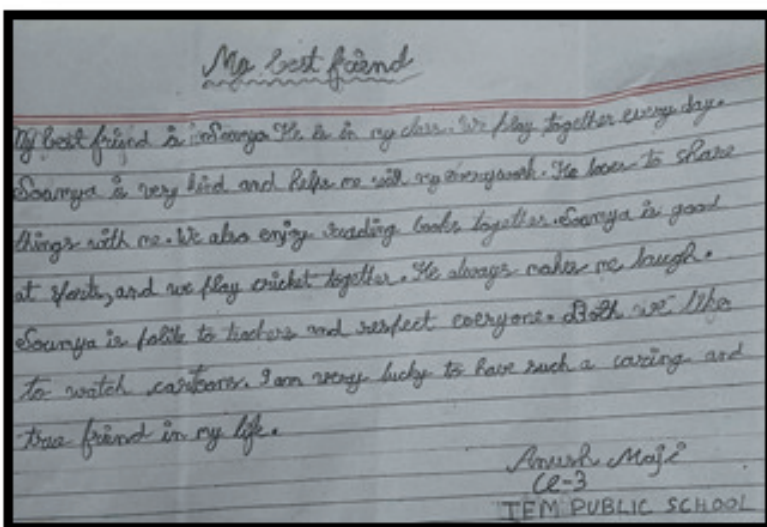 My best friend
My best friend is Soumya. He is in my class. We play together every day.
Soumya is very kind and helps me with my everywork. He loves to share
things with me. We also enjoy reading books together. Soumya is good
at sports, and we play cricket together. He always makes me laugh.
Soumya is polite to teachers and respect everyone. Both we like
to watch cartoons. I am very lucky to have such a caring and
true friend in my life.
Anush Maji
Cl-3
TEM PUBLIC SCHOOL